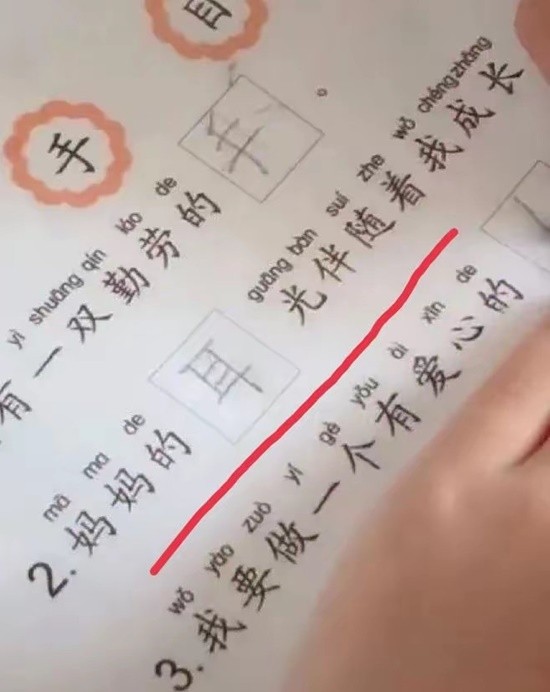 目
手
yì shuāng qín láo de
有一双勤劳的手。
mā ma de guāng bàn suí zhe wǒ chéng zhǎng
2.妈妈的耳光伴随着我成长
wǒ yào zuò yí gè yǒu ài xīn de
3.我要做一个有爱心的